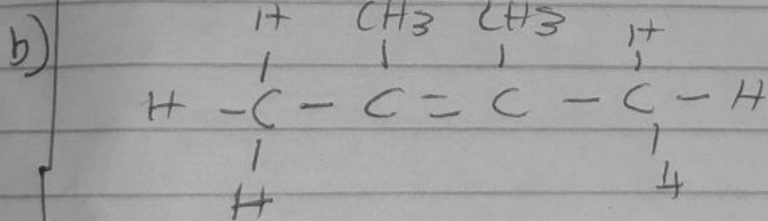 b)
H CH3 CH3 H
H - C - C = C - C - H
H H